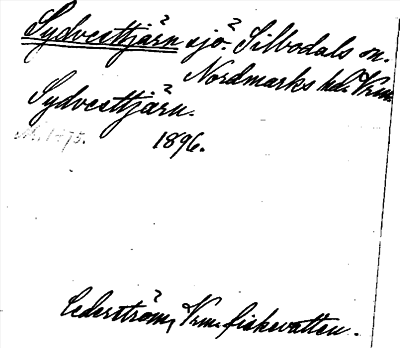 Sydvesttjärn sjö Silbodals sn.
Nordmarks hd. Vrm.
Sydvesttjärn.
1896.
Cederström, Vrm. fiskevatten.